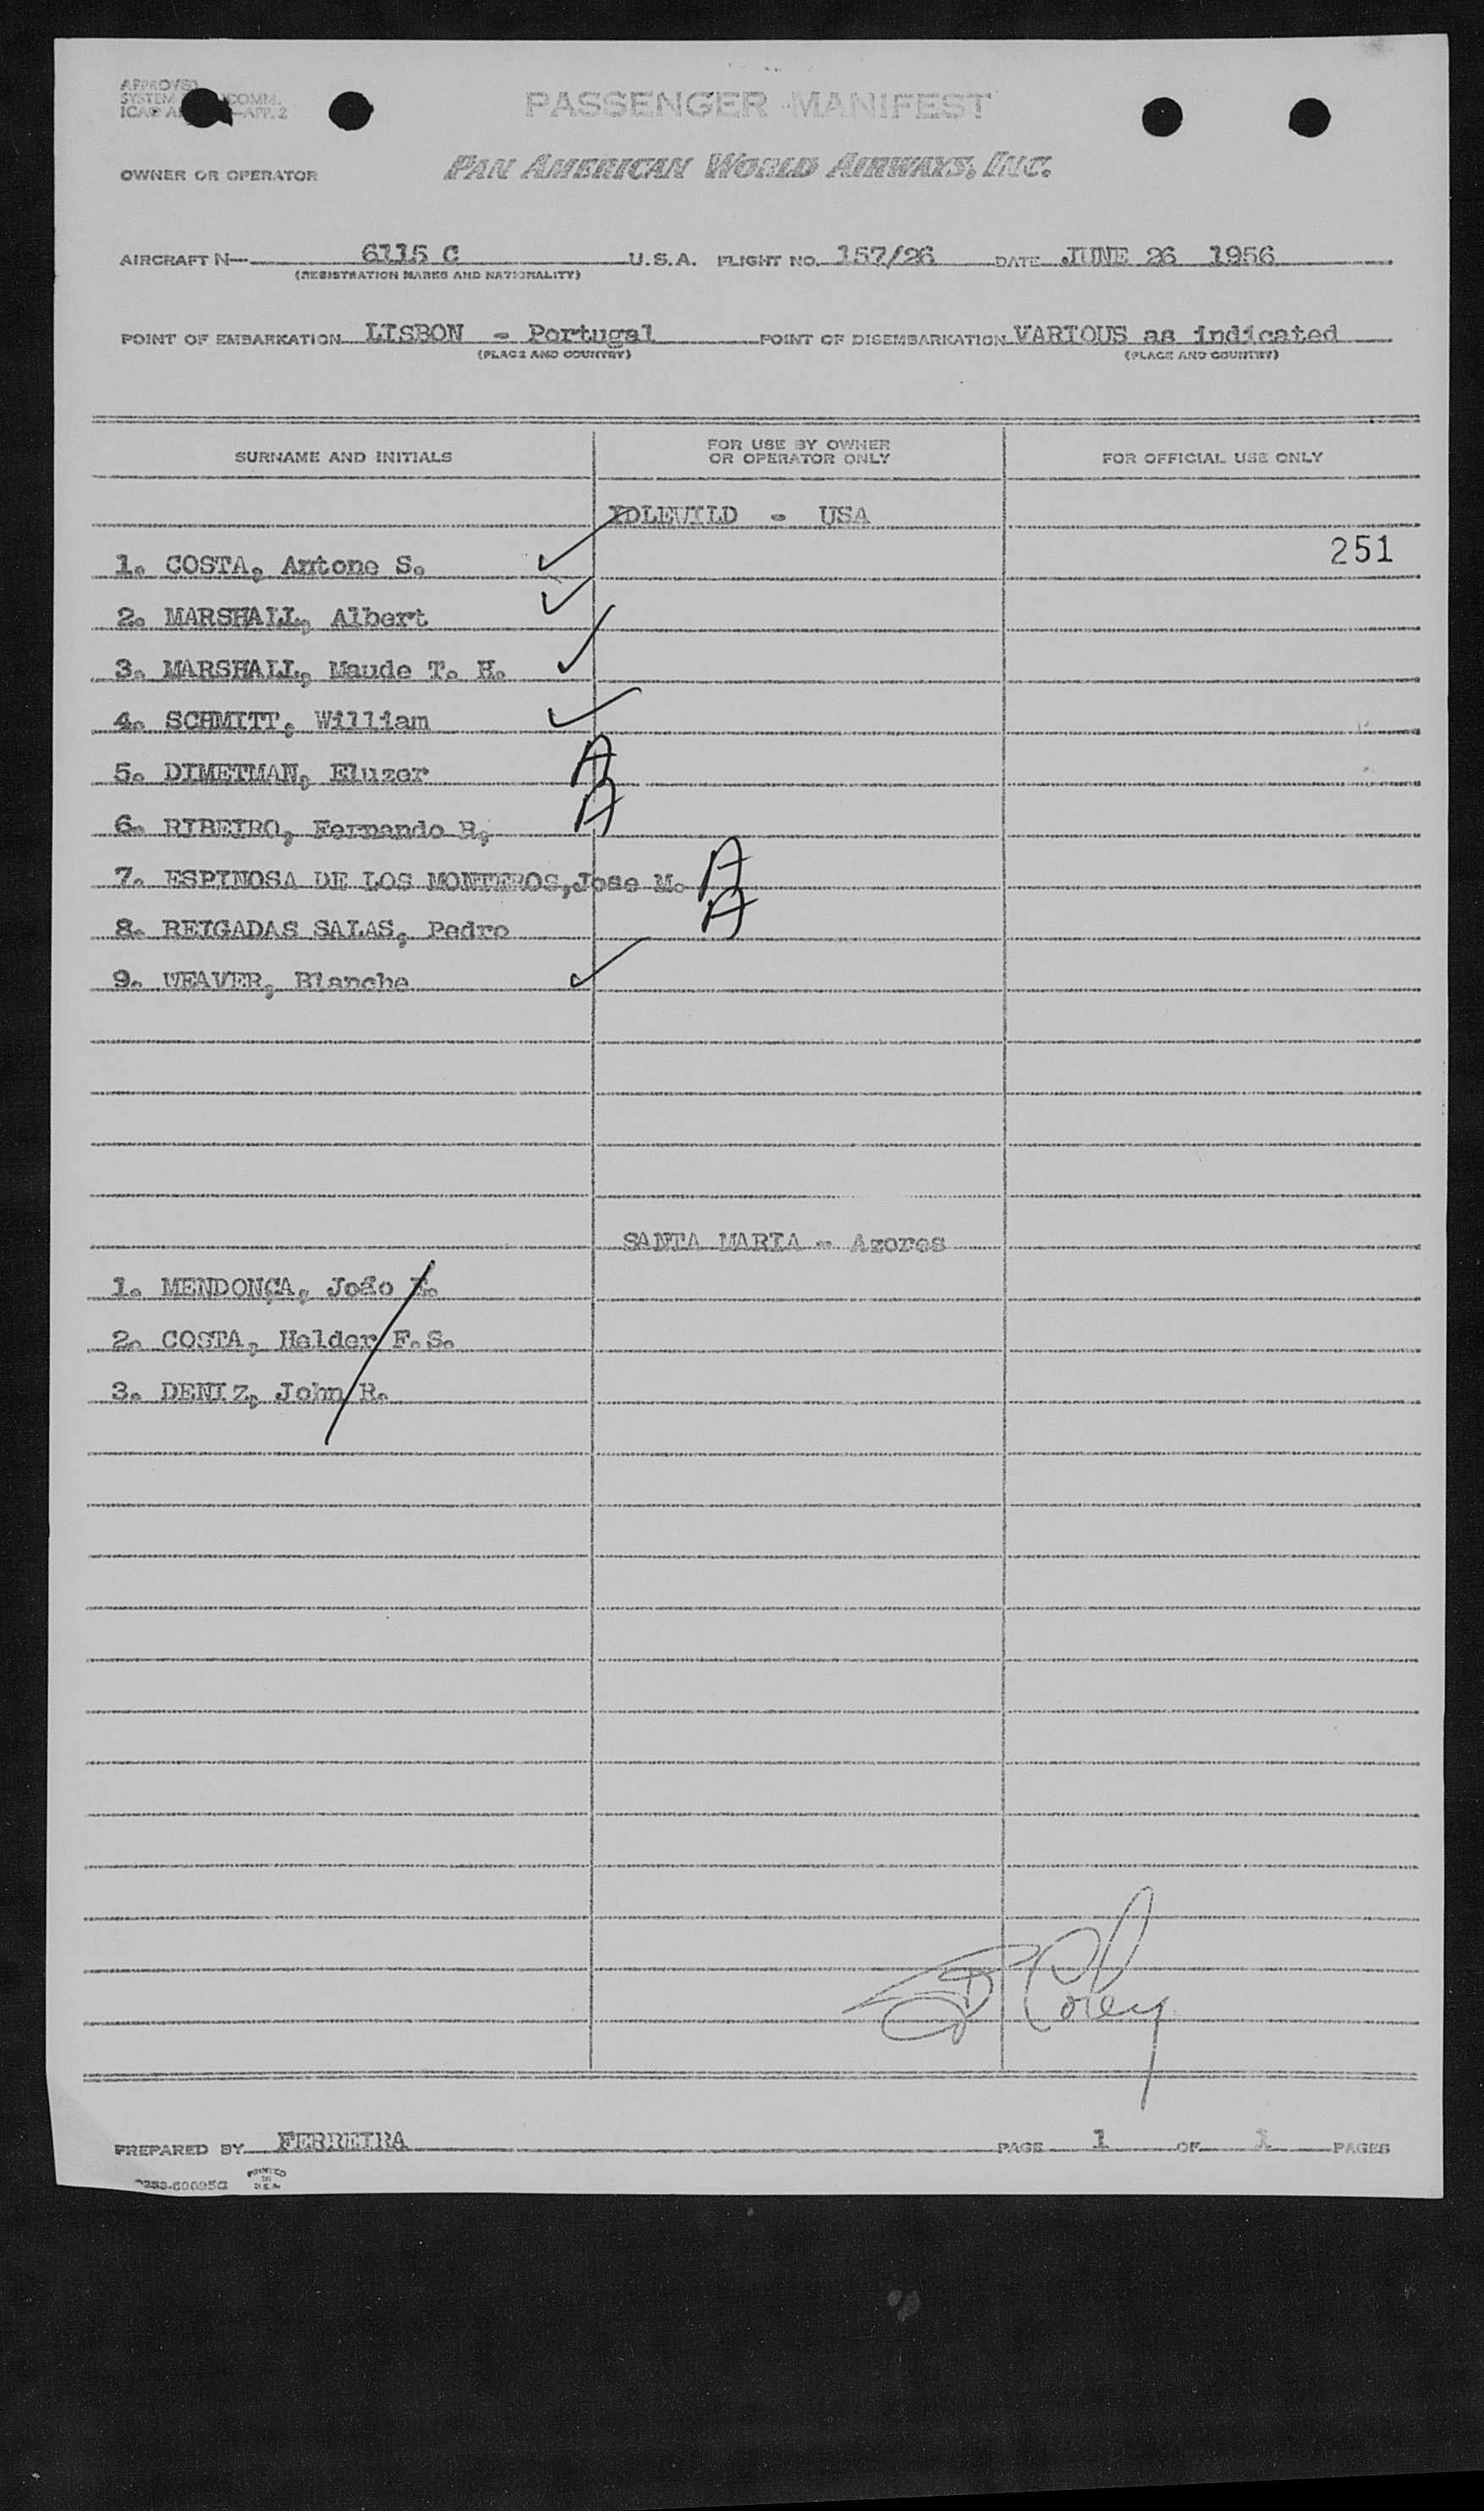 APPROVED
SYSTEM COMM.
ICAO —APP. 2
PASSENGER MANIFEST
OWNER OR OPERATOR PAN AMERICAN WORLD AIRWAYS, INC.
AIRCRAFT N— 6115 C U.S.A. FLIGHT NO. 157/26 DATE JUNE 26 1956
(REGISTRATION MARKS AND NATIONALITY)
POINT OF EMBARKATION LISBON - Portugal POINT OF DISEMBARKATION VARIOUS as indicated
(PLACE AND COUNTRY) (PLACE AND COUNTRY)
SURNAME AND INITIALS FOR USE BY OWNER OR OPERATOR ONLY FOR OFFICIAL USE ONLY
IDLEWILD - USA
1. COSTA, Antone S. ✓ 251
2. MARSHALL, Albert ✓
3. MARSHALL, Maude T. H. ✓
4. SCHMITT, William ✓
5. DIMETMAN, Eluzer A
6. RIBEIRO, Fernando R, A
7. ESPINOSA DE LOS MONTEROS, Jose M. A
8. REIGADAS SALAS, Pedro A
9. WEAVER, Blanche ✓
SANTA MARIA - Azores
1. MENDONÇA, João
2. COSTA, Helder F.S.
3. DENIZ, John R.
Corey
PREPARED BY FERREIRA PAGE 1 OF 1 PAGES
PRINTED
IN
U.S.A.